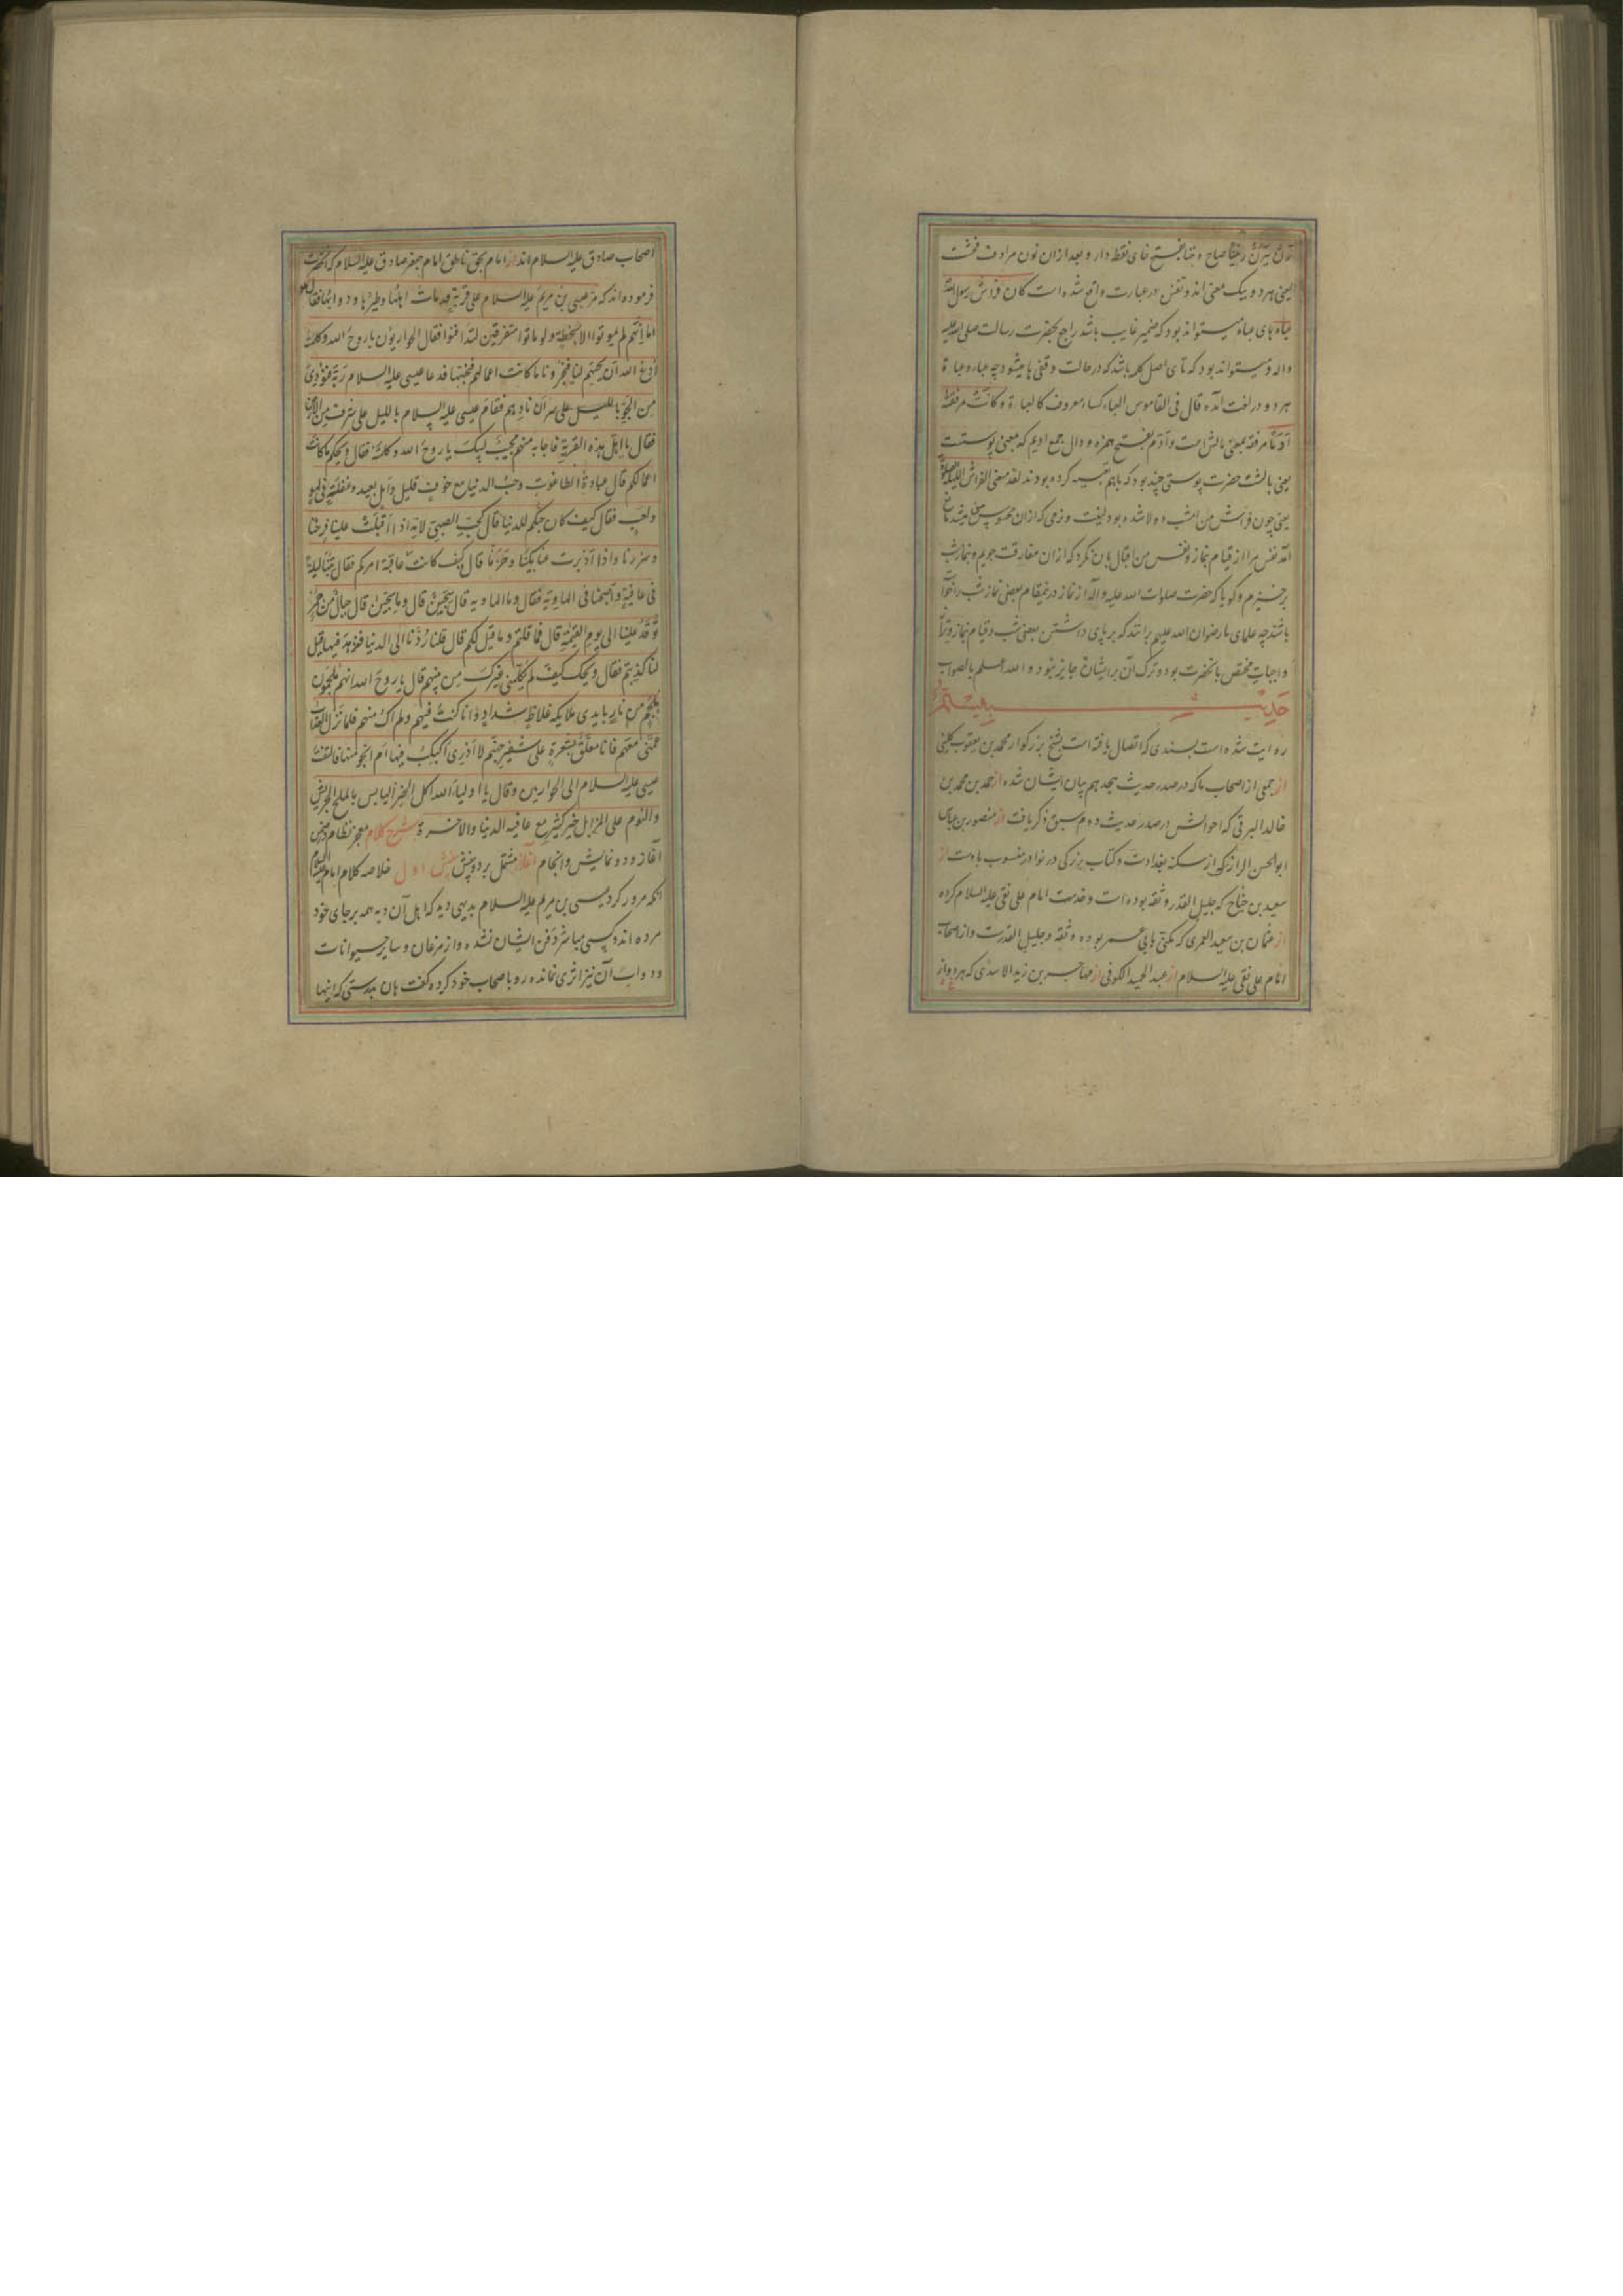 یعنی هر دو بیک معنی اند و تفنن در عبارت واقع شده است کان فراش رسول الله
عباه های عباه میتواند بود که ضمیر غایب باشد راجع بحضرت رسالت صلی الله علیه
واله و میتواند بود که تای اصل کلمه باشد که در حالت وقفی ها میشود چه عباء و عباءة
هر دو در لغت آمده قال فی القاموس العباء کساء معروف کالعباءة و کانت مرفقته
اَدَمًا مرفقه بمعنی بالش است و اَدَم بفتح همزه و دال جمع ادیم که بمعنی پوستست
یعنی بالش حضرت پوستی چند بود که باهم کرده بودند لقد منعنی الفراش اللیلة الصلوة
یعنی چون فراش من امشب دولا شده بود لینت و نرمی که ازان
آمد نفس مرا از قیام بنماز و نفس من اقبال بان نکرد که ازان مفارقت جویم و بنماز شب
برخیزم و گویا که حضرت صلوات الله علیه واله از نماز درینمقام بعضی نماز شب را خواسته
باشند چه علمای ما رضوان الله علیهم برانند که بر پای داشتن بعضی شب و قیام بنماز وتر از
واجبات مختص بانحضرت بود و ترک آن برایشان جایز نبود و الله اعلم بالصواب
حدیث بیستم
روایت شده است بسندی که اتصال یافته است بشیخ بزرکوار محمد بن یعقوب کلینی
از جمعی از اصحاب ما که در صدر حدیث هجدهم بیان ایشان شده از احمد بن محمد بن
خالد البرقی که احوالش در صدر حدیث دوم سبق ذکر یافت از منصور بن عباس
ابو الحسن الرازی که از سکنه بغدادست و کتاب بزرکی در نوادر منسوب باوست از
سعید بن جناح که جلیل القدر و ثقه بوده است و خدمت امام علی نقی علیه السلام کرده
از عثمان بن سعید العمری که مکنی بابی عمر بوده و ثقه و جلیل القدرست و از اصحاب
امام علی نقی علیه السلام از عبد الحمید الکوفی از مهاجر بن زید الاسدی که هر دو از
اصحاب صادق علیه السلام اند از امام بحق ناطق امام جعفر صادق علیه السلام که آنحضرت
فرموده اند که مَرّ عیسی بن مریم علیه السلام علی قریة قد مات اهلها و طیرها و دوابها فقال
اما انّهم لم یموتوا الا بسخطة و لو ماتوا متفرقین لتدافنوا فقال الحواریّون یا روح الله و کلمته
اُدع الله ان یحییهم لنا فیخبرونا ما کانت اعمالهم فنجتنبها فدعا عیسی علیه السلام ربّه فنودی
من الجوّ باللیل علی ان نادِهم فقام عیسی علیه السلام باللیل علی شرف من الارض
فقال یا اهل هذه القریة فاجابه منهم مجیب لبیک یا روح الله و کلمته فقال ویحکم ما کانت
اعمالکم قال عبادة الطاغوت و حبّ الدنیا مع خوف قلیل و امل بعید و غفلة فی لهو
و لعب فقال کیف کان حبّکم للدنیا قال کحبّ الصبیّ لامّه اذا اقبلت علینا فرحنا
و سررنا و اذا ادبرت عنا بکینا و حزنّا قال کیف کانت عاقبة امرکم فقال بتنا لیلة
فی عافیة و اصبحنا فی الهاویة فقال و ما الهاویه قال سجّین قال و ما سجّین قال جبال من جمر
توقد علینا الی یوم القیٰمة قال فما قلتم و ما قیل لکم قال قلنا رُدّنا الی الدنیا فنزهد فیها قیل
لنا کذبتم فقال ویحک کیف لم یکلّمنی غیرک من بینهم قال یا روح الله انهم ملجمون
بلجم من نار بایدی ملایکة غلاظ شداد و انا کنت فیهم و لم اک منهم فلما نزل العذاب
عمّنی معهم فانا معلّق بشعرة علی شفیر جهنم لا ادری اکبکب فیها ام انجو منها فالتفت
عیسی علیه السلام الی الحواریین و قال یا اولیاء الله اکل الخبز الیابس بالملح الجریش
والنوم علی المزابل خیر کثیر مع عافیه الدنیا والاخرة شرح کلام معجز نظام در ضمن
آغاز و دو نمایش و انجام آغاز مشتمل بر دو بینش بینش اول خلاصه کلام امام علیه السلام
آنکه مرور کرد عیسی بن مریم علیه السلام بدیهی دید که اهل آن دیه همه بر جای خود
مرده اند و کسی مباشر دفن ایشان نشده و از مرغان و سایر حیوانات
و دواب آن نیز اثری نمانده رو باصحاب خود کرده گفت هان بدرستی که اینها